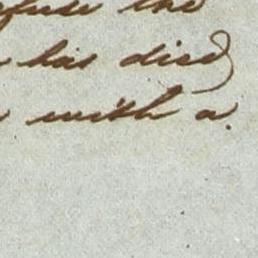 the
has died
with a